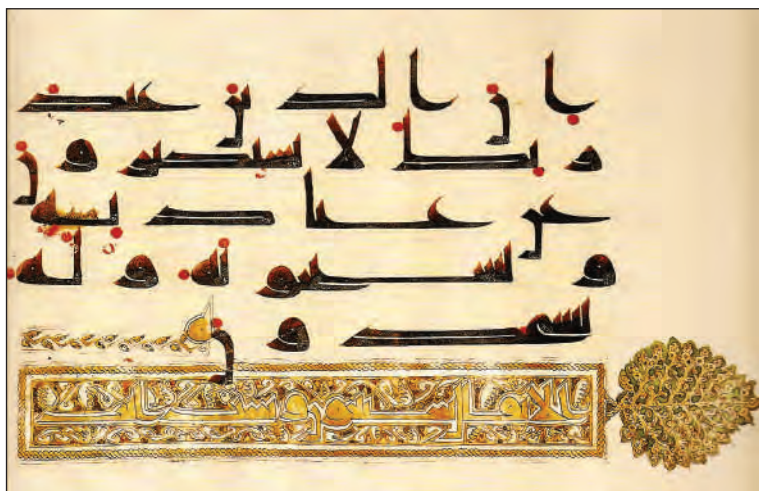 ان الذين عند
ربك لا يستكبرون
عن عبادته
و يسبحونه و له
يسجدون
الانفال سبعون وست ايات